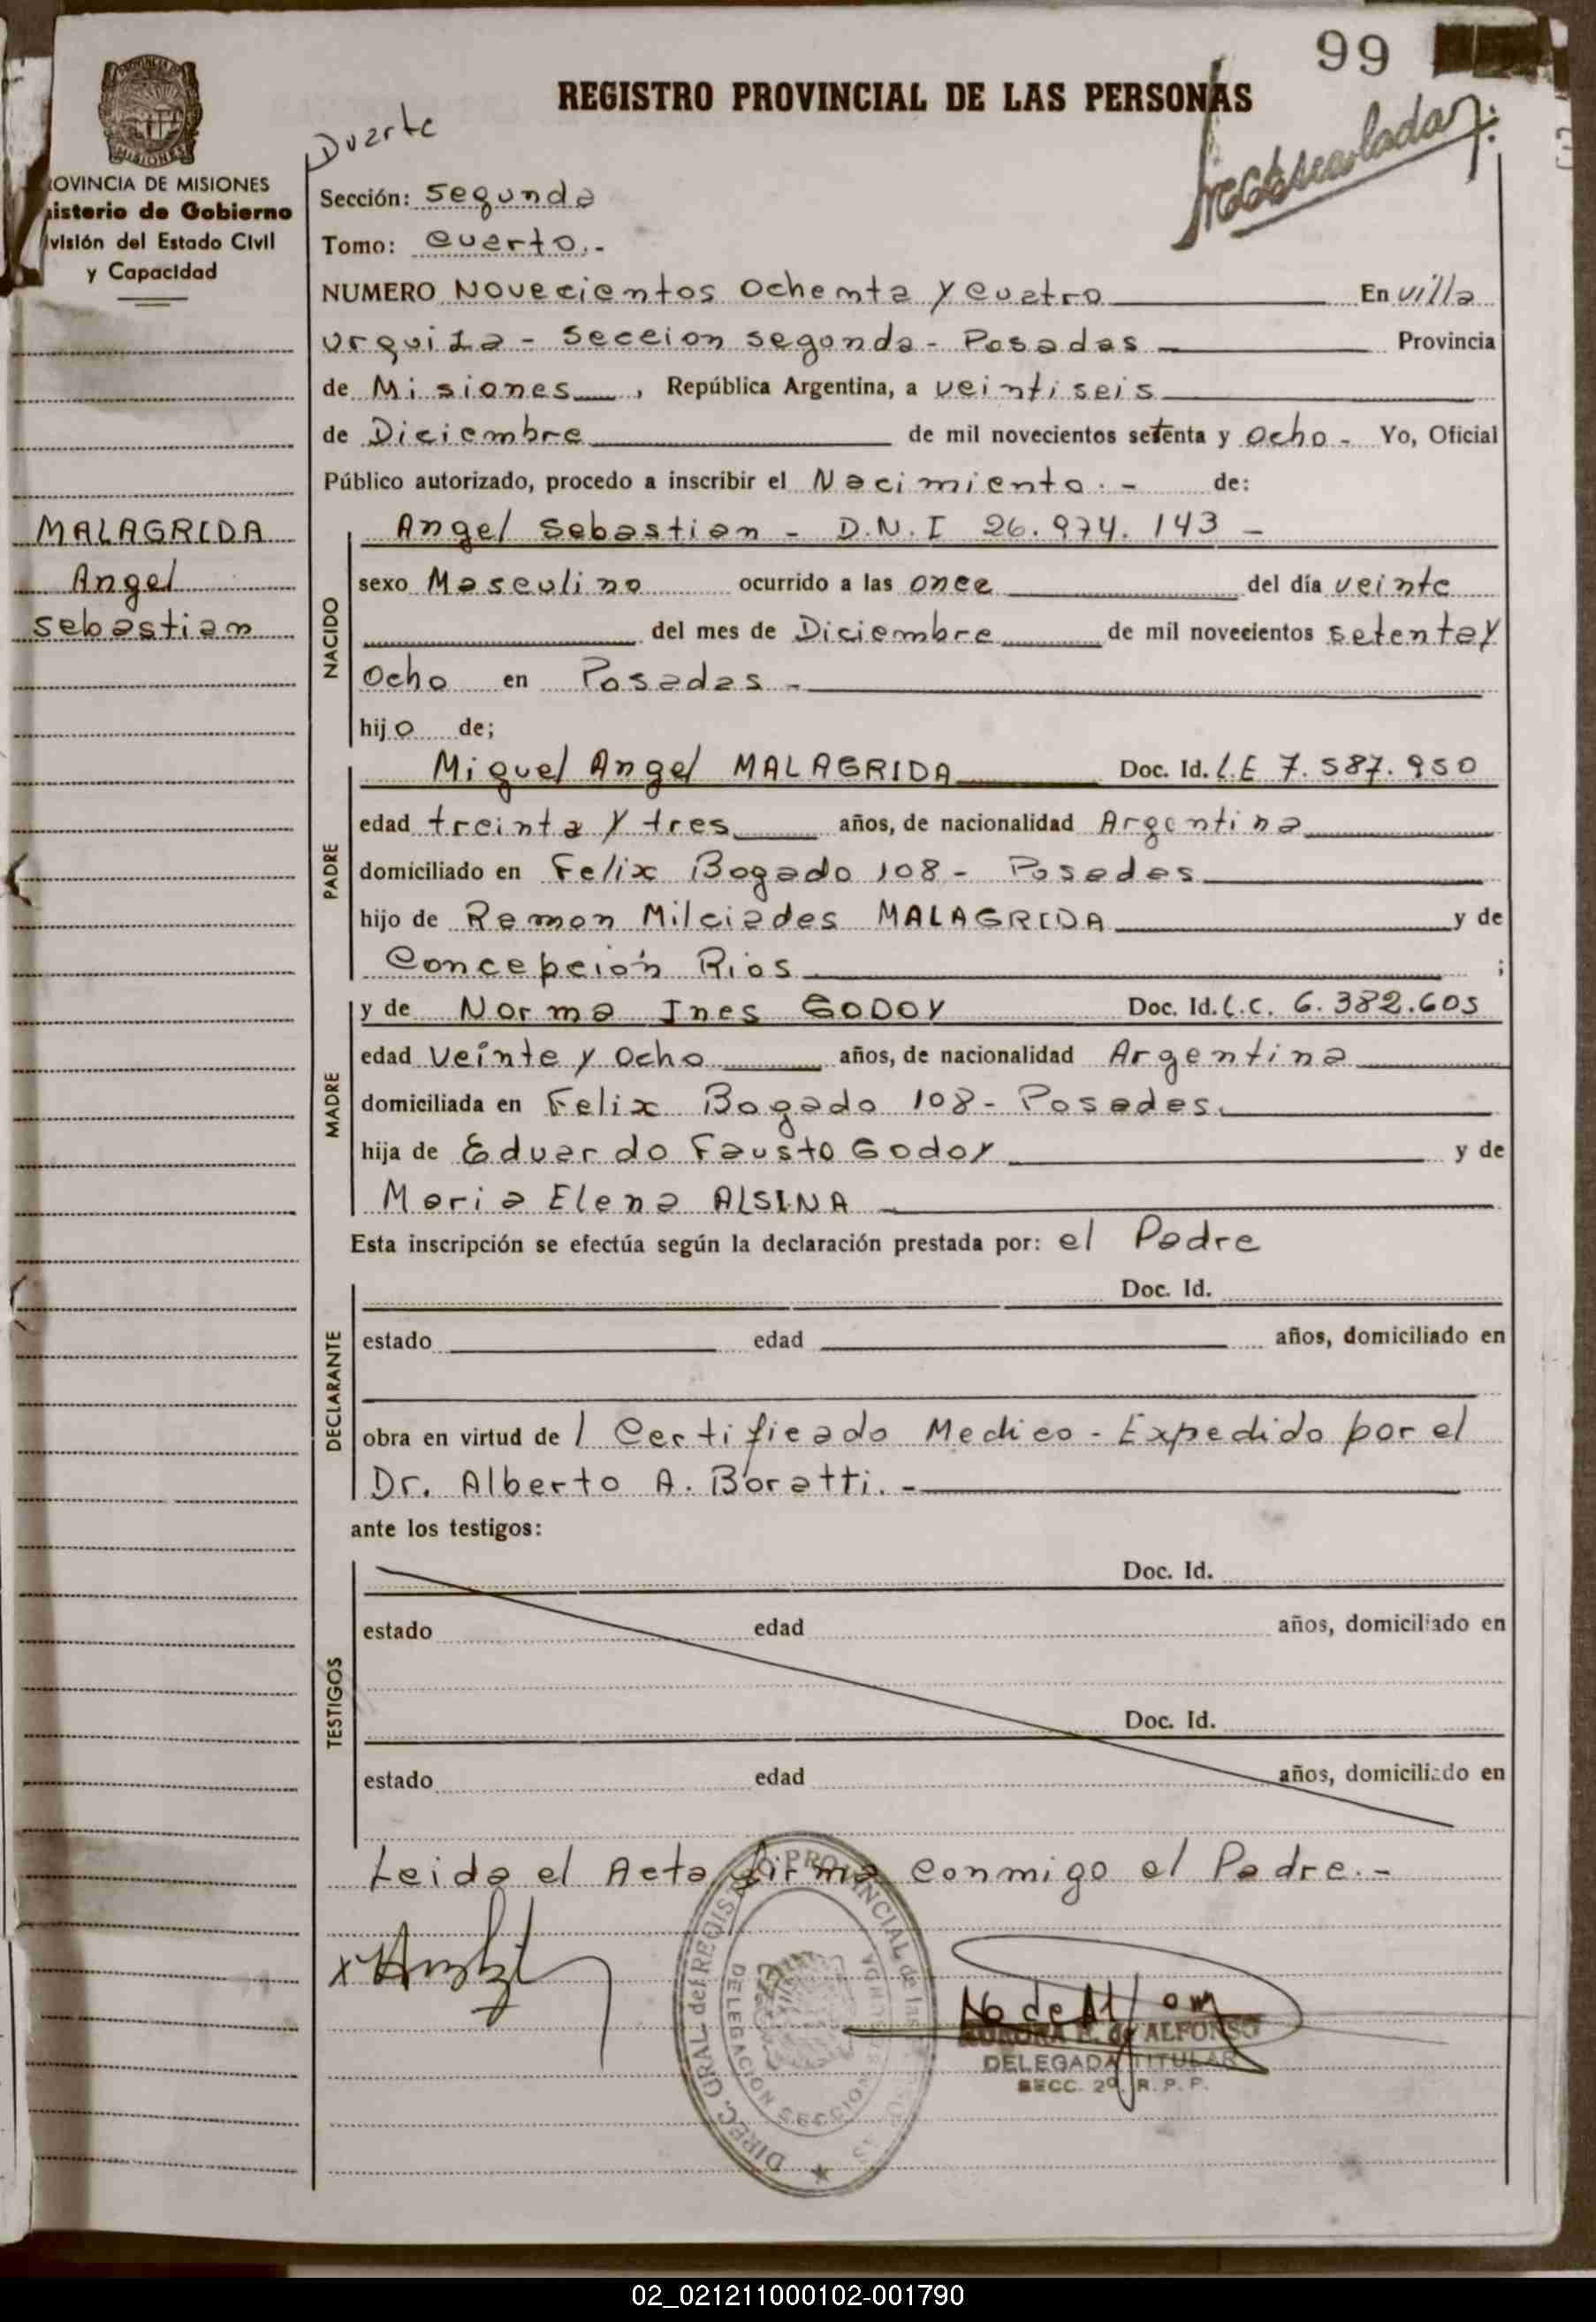 99
REGISTRO PROVINCIAL DE LAS PERSONAS
Matriculado
Duarte
MISIONES
OVINCIA DE MISIONES
isterio de Gobierno
ivisión del Estado Civil
y Capacidad
MALAGRIDA
Angel
Sebastian
Sección: Segunda
Tomo: Cuarto.-
NUMERO Novecientos Ochenta y Cuatro En villa
Urquiza - Seccion Segunda - Posadas Provincia
de Misiones, República Argentina, a veintiseis
de Diciembre de mil novecientos setenta y Ocho - Yo, Oficial
Público autorizado, procedo a inscribir el Nacimiento.- de:
NACIDO
Angel Sebastian - D.N.I 26.974.143 -
sexo Masculino ocurrido a las once del día veinte
del mes de Diciembre de mil novecientos setenta y
Ocho en Posadas -
hijo de;
PADRE
Miguel Angel MALAGRIDA Doc. Id. L.E 7.587.950
edad treinta y tres años, de nacionalidad Argentina
domiciliado en Felix Bogado 108 - Posadas
hijo de Ramon Milciades MALAGRIDA y de
Concepción Rios ;
MADRE
y de Norma Ines GODOY Doc. Id. L.C. 6.382.605
edad Veinte y Ocho años, de nacionalidad Argentina
domiciliada en Felix Bogado 108 - Posadas.
hija de Eduardo Fausto Godoy y de
Maria Elena ALSINA
Esta inscripción se efectúa según la declaración prestada por: el Padre
DECLARANTE
Doc. Id.
estado edad años, domiciliado en
obra en virtud de 1 Certificado Medico - Expedido por el
Dr. Alberto A. Boratti. -
ante los testigos:
TESTIGOS
Doc. Id.
estado edad años, domiciliado en
Doc. Id.
estado edad años, domiciliado en
Leida el Acta firma conmigo el Padre.-
DIREC. GRAL. del REGISTRO PROVINCIAL de las
DELEGACION
MISIONES
AURORA R. de ALFONSO
DELEGADA TITULAR
SECC. 2ª R. P. P.
02_021211000102-001790